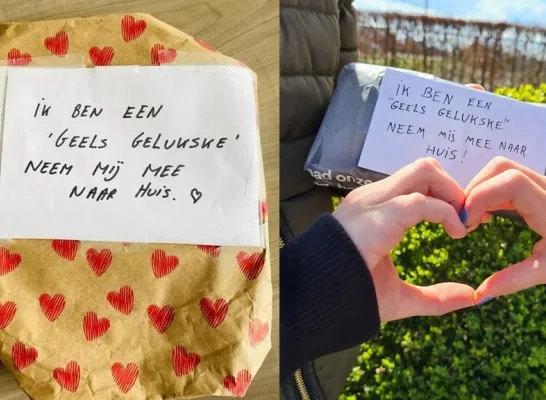 IK BEN EEN
'GEELS GELUKSKE'
NEEM MIJ MEE
NAAR HUIS.
IK BEN EEN
"GEELS GELUKSKE"
NEEM MIJ MEE NAAR
HUIS!
ad onze